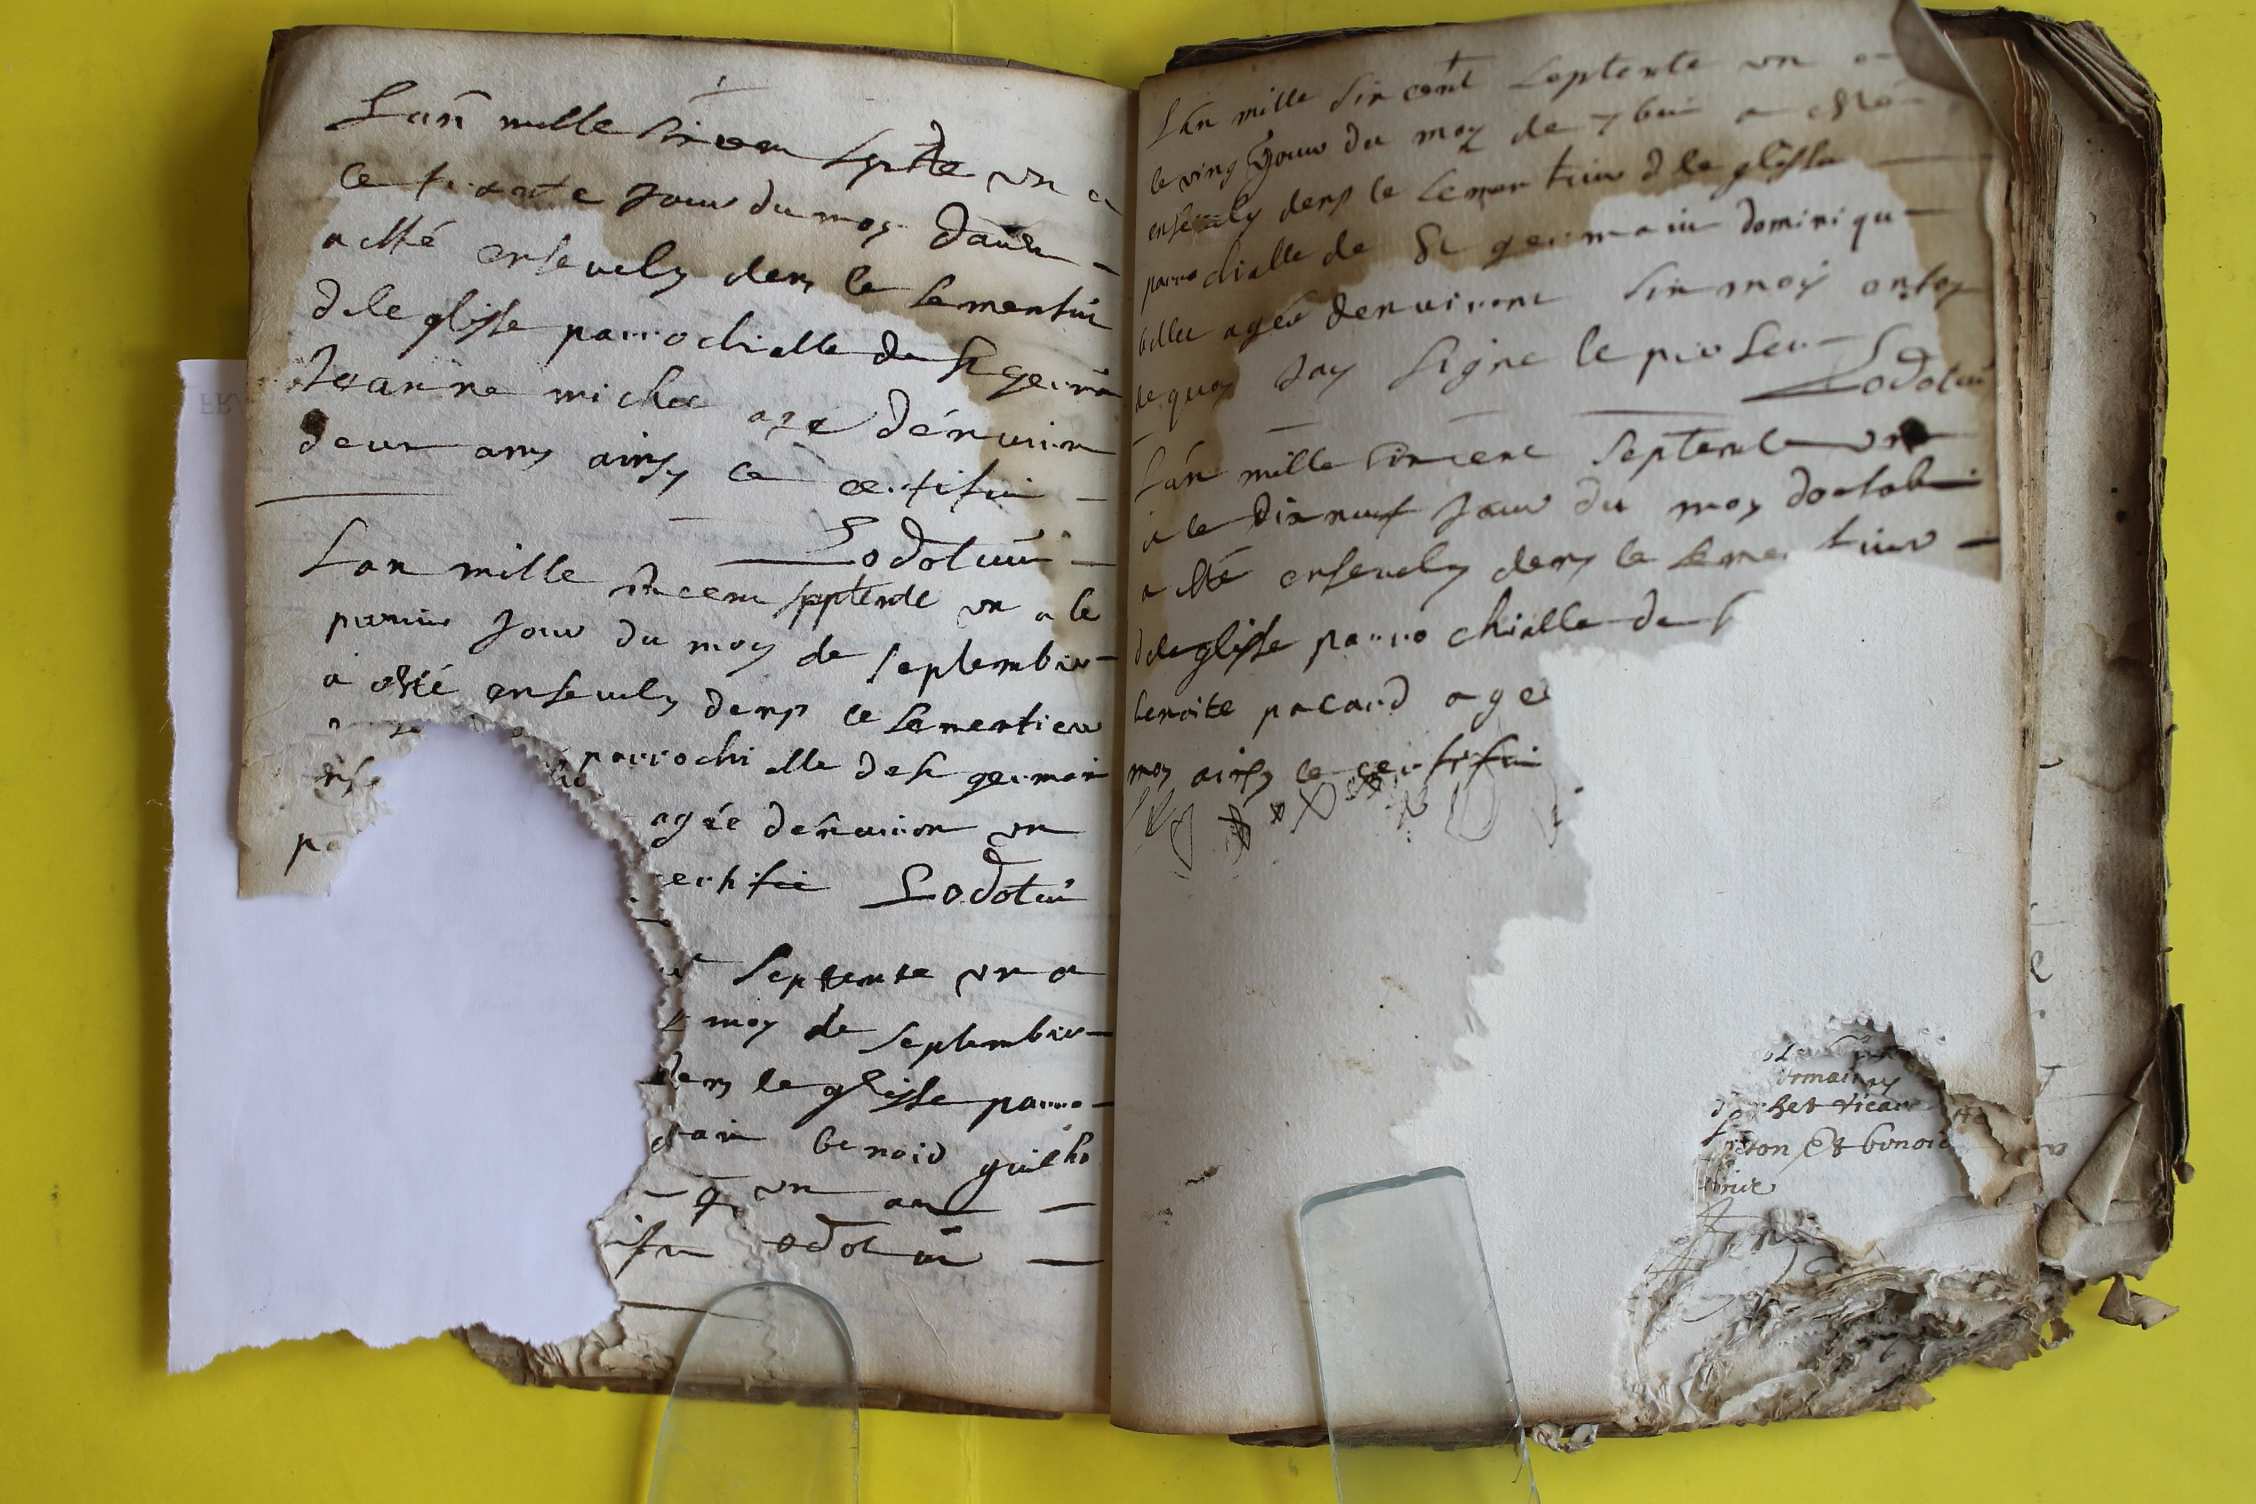 Lan mille sincen septte un a
le trante jour du moy daou
a esté ensevely dens le sementiu
dile glisse parrochialle de st germain
Jeanne michec age dénuiron
deux ans ainsy le certifui
Lodotuu
Lan mille sincent septente un a le
premier jour du moy de septembre
a esté ensevely dens le sementieu
parrochialle de st germain
agée dénuiron un
certifie Lodotui
septente un a
moy de septembre
dens le glisse parro
main benoid guicho
un an
ifui odotui
Lan mille sincent septente un a
le ving jour du moy de 7bre a esté
ensevely dens le sementieu dile glisse
parrochialle de st germain dominiqu
bellec agée denuiront sin moy en foy
de quoy jay signe le preseu
Lodotui
Lan mille sincent septente un
a le dixneuf jour du moy doctobr
a esté ensevely dens le sementieu
dile glisse parrochialle de s
benoite pacaud age
moy ainsy le certifui
het vicaire
Et benoid